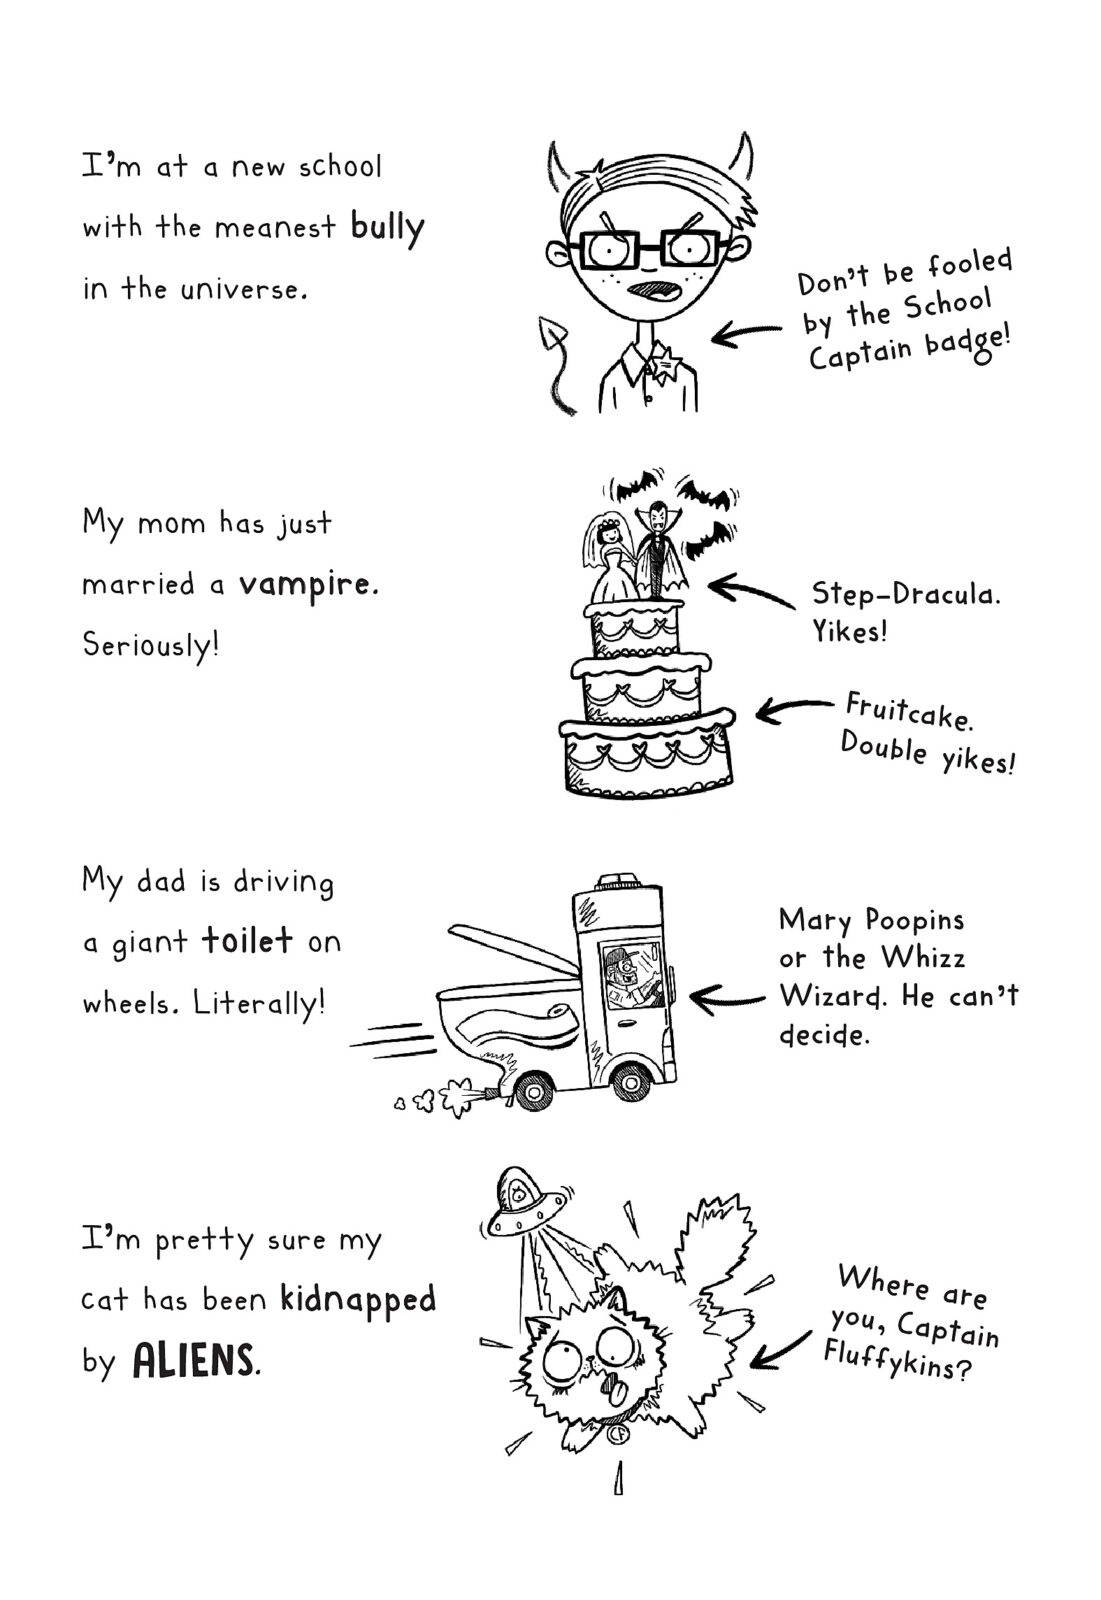 I'm at a new school
with the meanest bully
in the universe.
Don't be fooled
by the School
Captain badge!
My mom has just
married a vampire.
Seriously!
Step-Dracula.
Yikes!
Fruitcake.
Double yikes!
My dad is driving
a giant toilet on
wheels. Literally!
Mary Poopins
or the Whizz
Wizard. He can't
decide.
I'm pretty sure my
cat has been kidnapped
by ALIENS.
Where are
you, Captain
Fluffykins?
CF